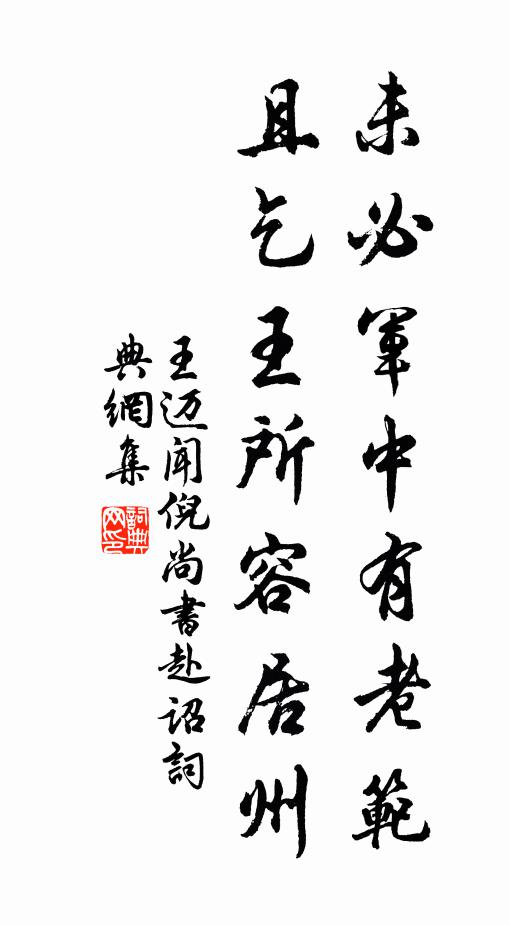 未必軍中有老範
且乞王所容居州
王迈闻倪尚書赴詔詞
典網集
詞典网印